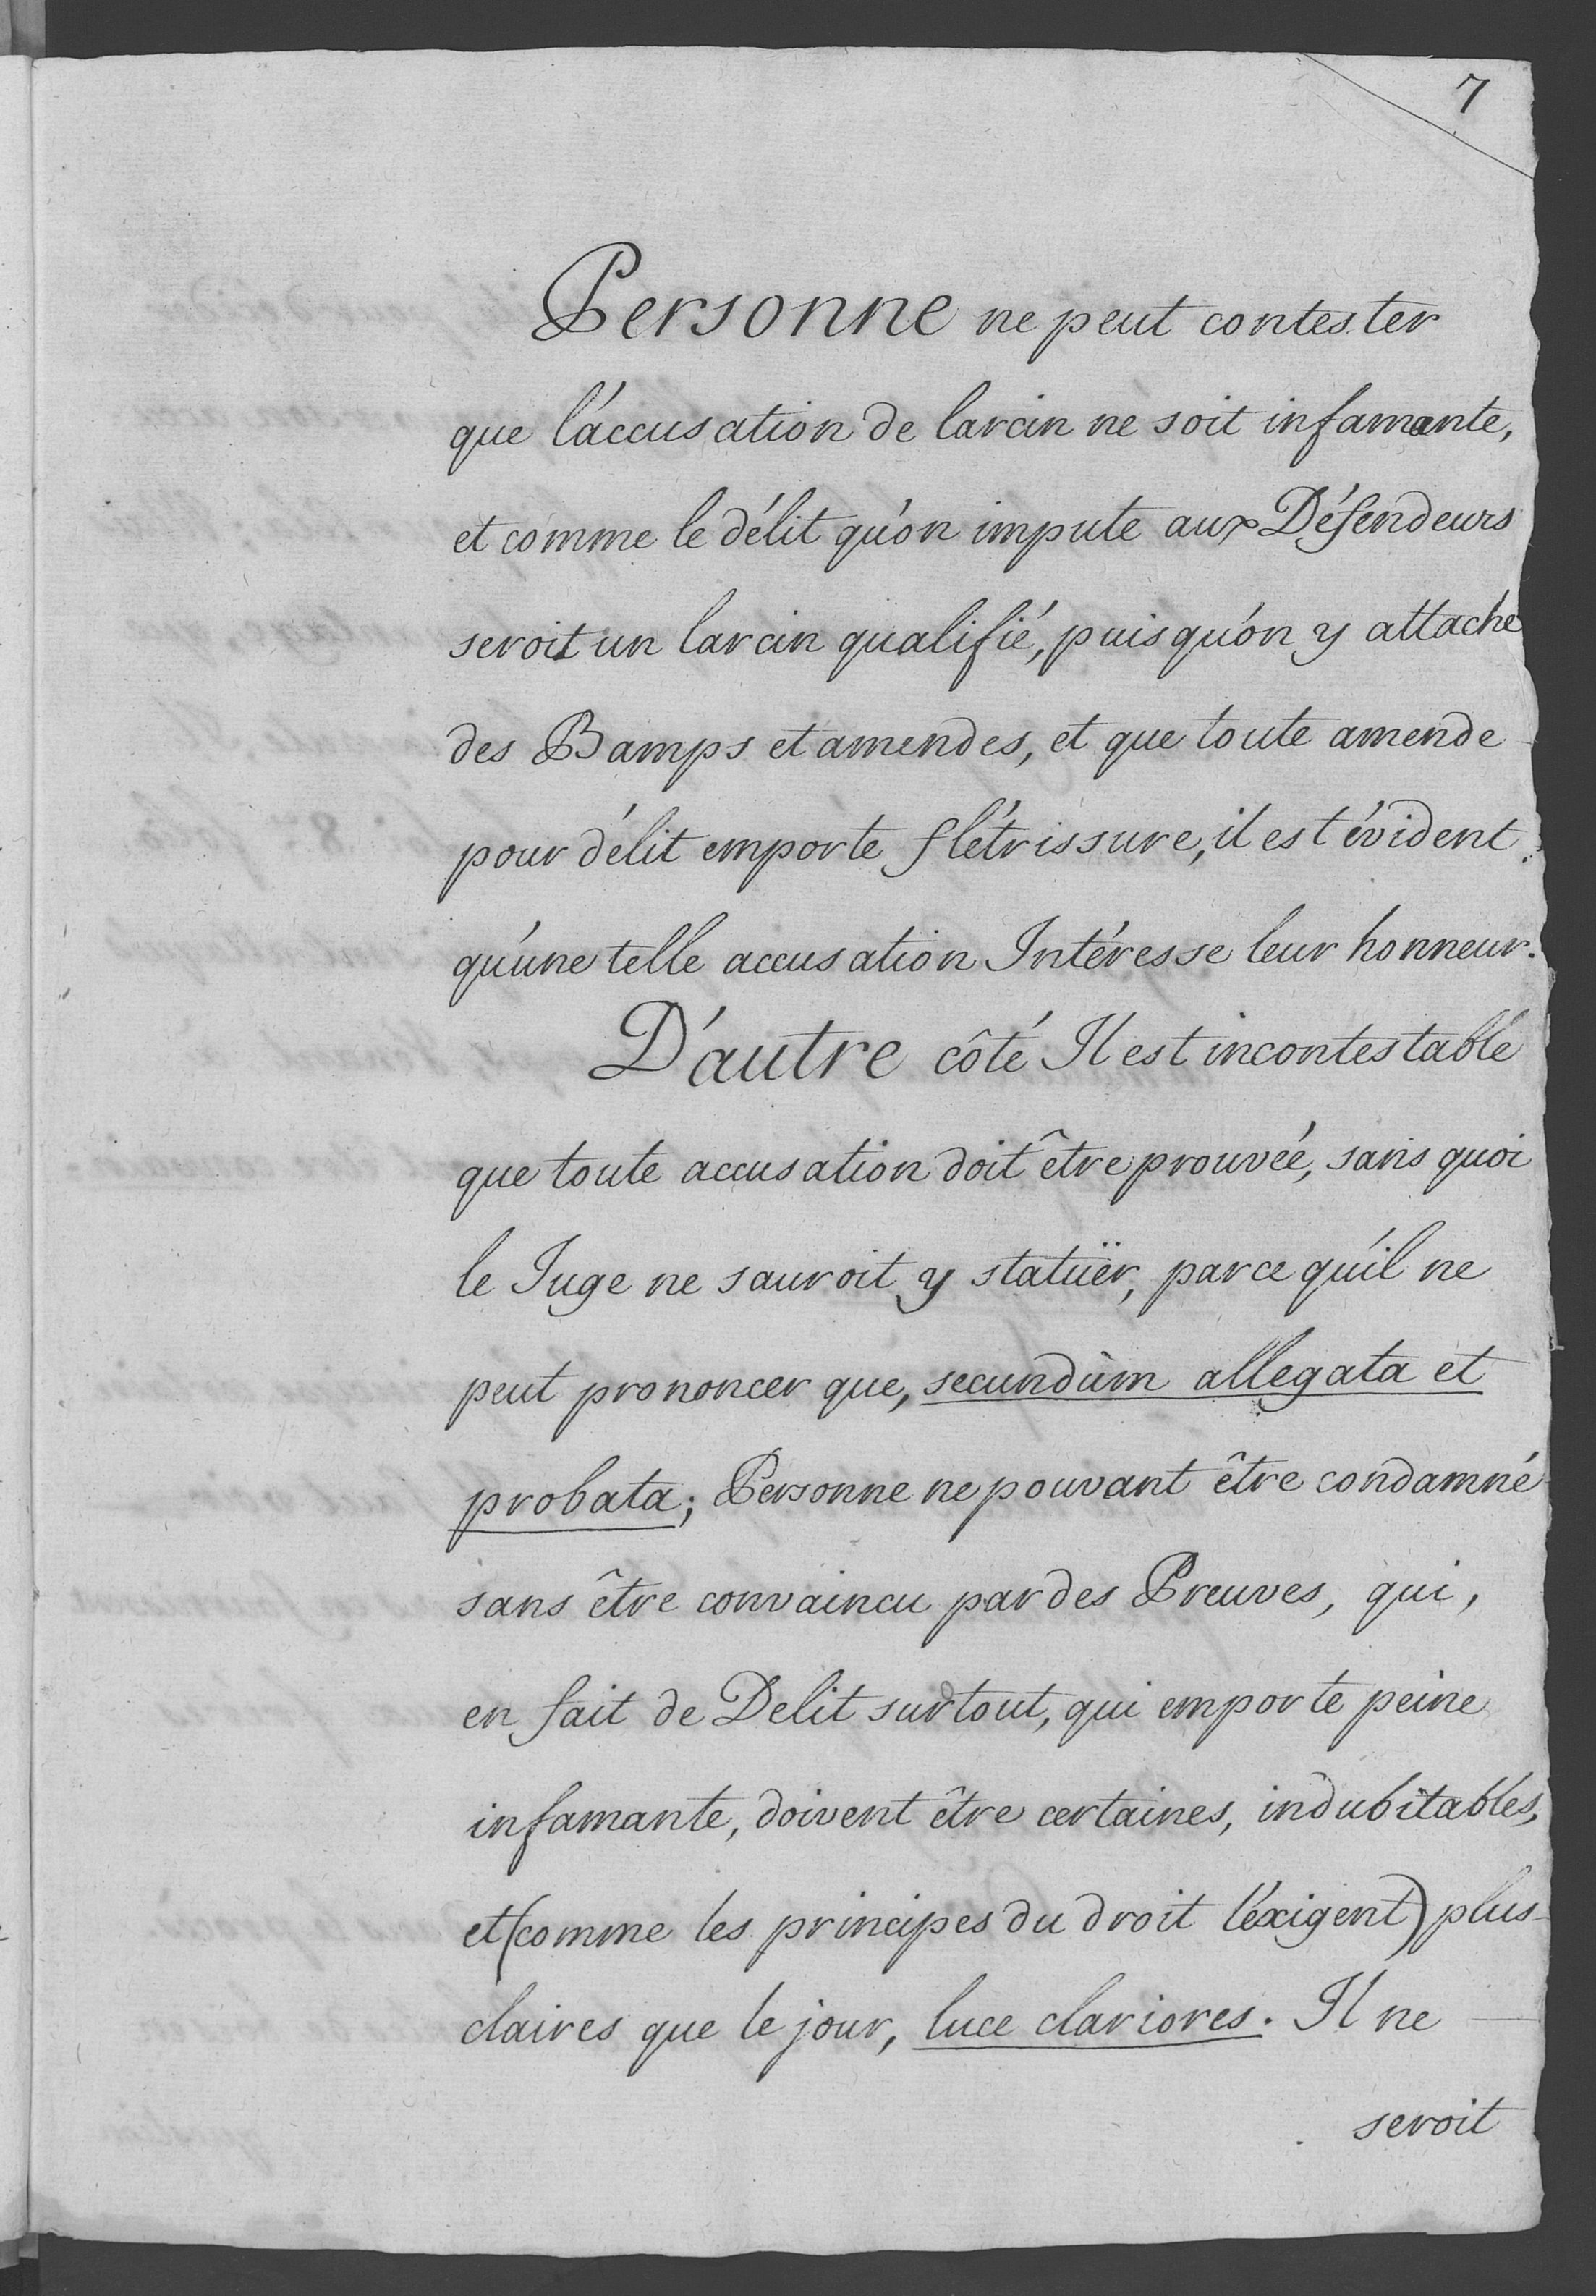 7
Personne ne peut contester
que l'accusation de larcin ne soit infamante,
et comme le délit qu'on impute aux Défendeurs
seroit un larcin qualifié, puisqu'on y attache
des Bamps et amendes, et que toute amende
pour délit emporte flétrissure, il est évident
qu'une telle accusation Intéresse leur honneur.
D'autre côté Il est incontestable
que toute accusation doit être prouvée, sans quoi
le Juge ne sauroit y statüer, parce qu'il ne
peut prononcer que, secundùm allegata et
probata; Personne ne pouvant être condamné
sans être convaincu par des Preuves, qui,
en fait de Delit surtout, qui emporte peine
infamante, doivent être certaines, indubitables,
et (comme les principes du droit l'éxigent) plus
claires que le jour, luce clariores. Il ne
seroit